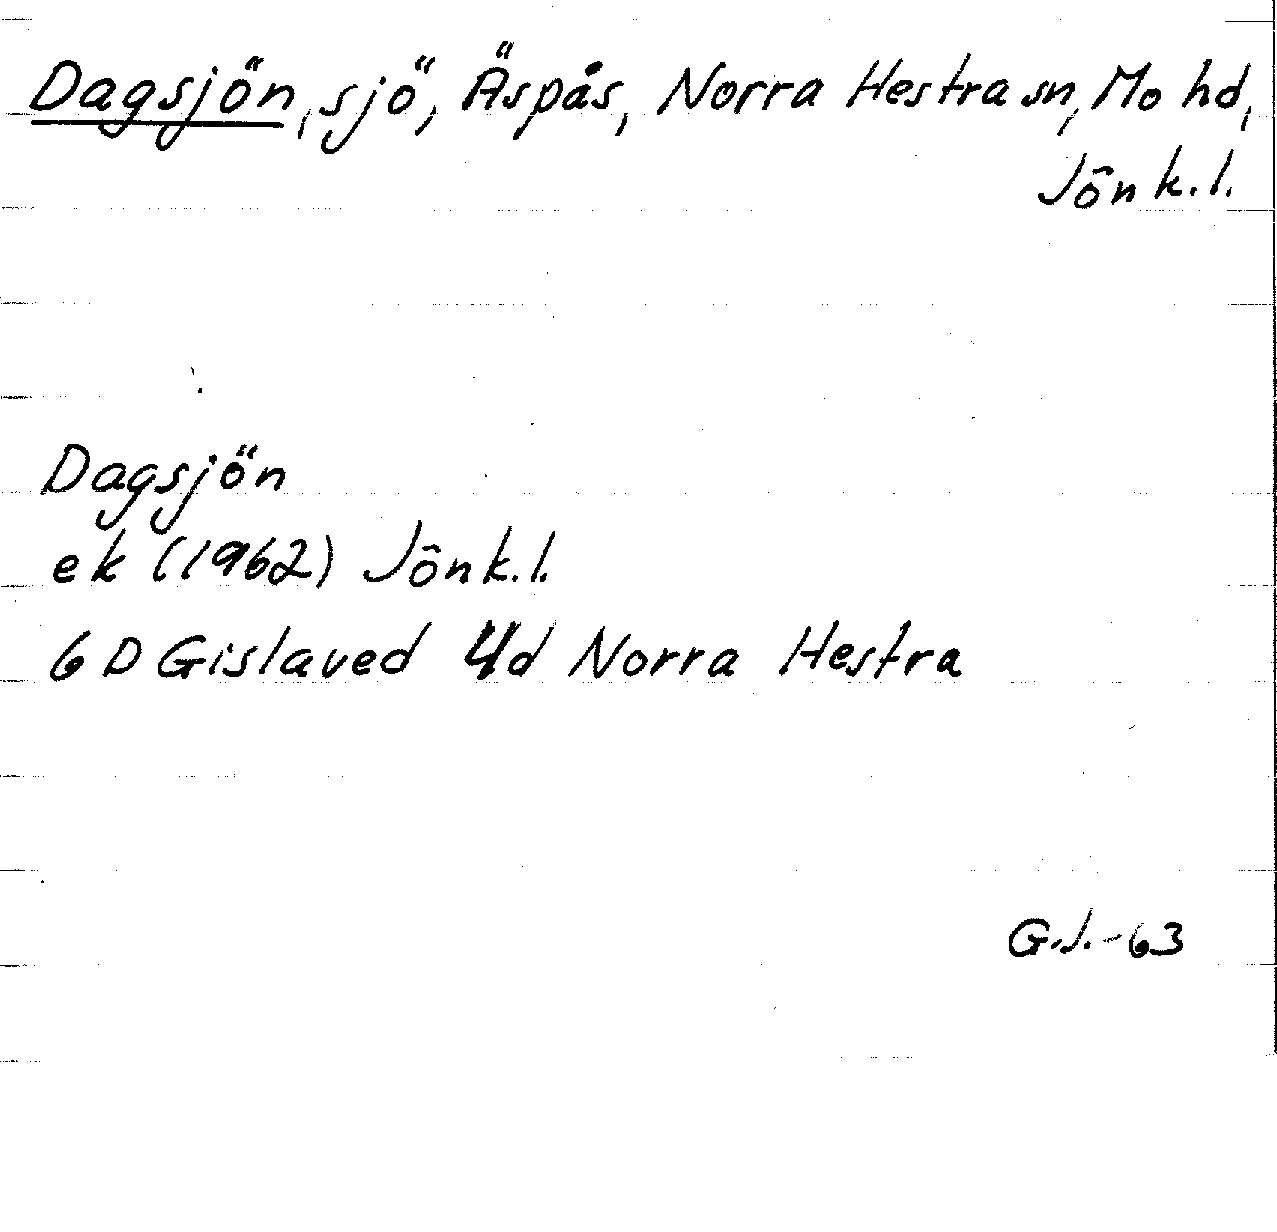 Dagsjön, sjö, Äspås, Norra Hestra sn, Mo hd,
Jönk.l.
Dagsjön
ek (1962) Jönk.l.
6D Gislaved 4d Norra Hestra
G.J.-63